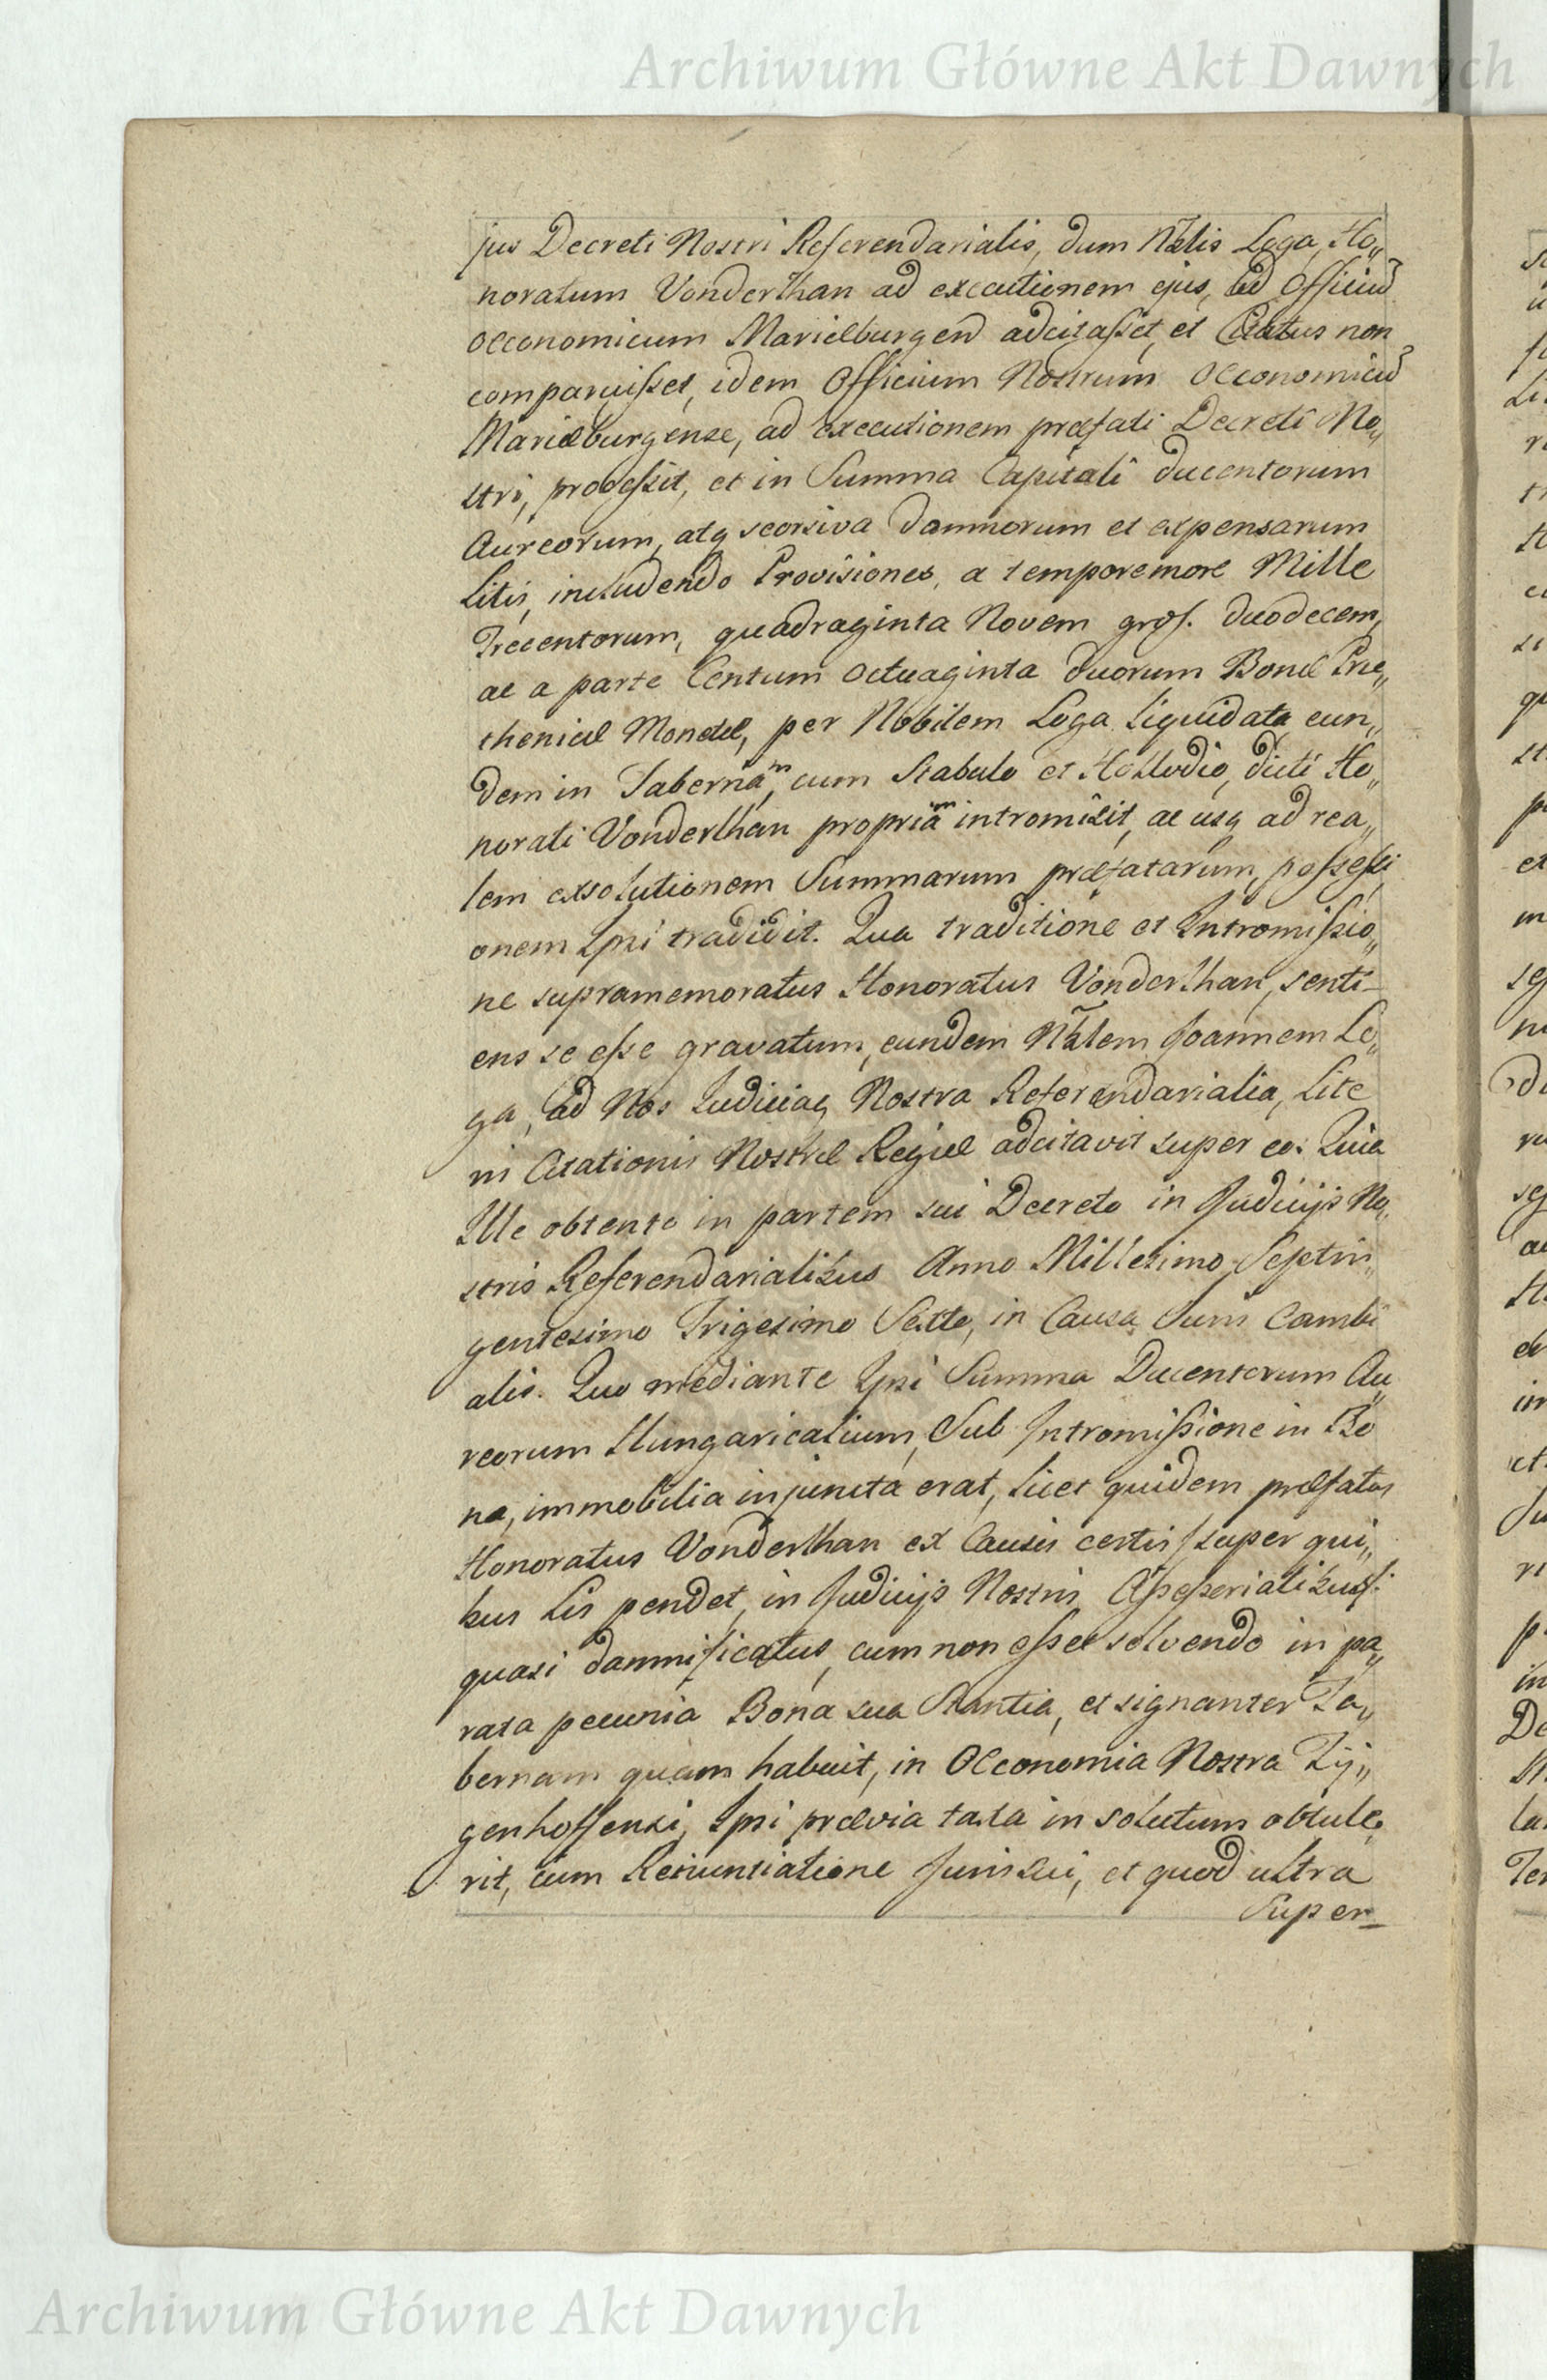 Archiwum Główne Akt Dawnych
jus Decreti Nostri Referendarialis, dum Nblis Loga, Ho„
noratum Vonderthan ad executionem ejus, ad Officiū
Oeconomicum Mariæburgen adcitasset, et Citatus non
comparuisset, idem Officium Nostrum Oeconomicū
Mariæburgense, ad executionem præfati Decreti No„
stri, processit, et in Summa Capitali ducentorum
Aureorum, atq seorsiva damnorum et expensarum
Litis, includendo Provisiones, a tempore moræ Mille
Trecentorum, quadraginta Novem gros. duodecem,
ac a parte Centum octuaginta duorum Bonæ Pru„
thenicæ Monetæ, per Nobilem Loga liquidata, eun„
dem in Tabernam, cum Stabulo et Hollodio, dicti Ho„
norati Vonderthan propriam intromisit, ac usq ad rea„
lem exsolutionem Summarum præfatarum, possessi
onem Ipsi tradidit. Qua traditione et Intromissio„
ne supramemoratus Honoratus Vonderthan, senti-
ens se esse gravatum, eundem Nblem Joannem Lo„
ga, ad Nos Judiciaq Nostra Referendarialia, Lite
ris Citationis Nostræ Regiæ adcitavit super eo: Quia
Ille obtento in partem sui Decreto in Judicijs No„
stris Referendarialibus Anno Millesimo Septin„
gentesimo Trigesimo Sexto, in Causa Juris Cambi
alis. Quo mediante Ipsi Summa Ducentorum Au„
reorum Hungaricalium, Sub Intromissione in Bo
na, immobilia injuncta erat, licet quidem præfatus
Honoratus Vonderthan ex Causis certis /super qui„
bus Lis pendet, in Judicijs Nostris Assessorialibus/:
quasi damnificatus, cum non esset solvendo in pa„
rata pecunia Bona sua Stantia, et signanter Ta„
bernam quam habuit, in Oeconomia Nostra Tij„
genhoffensi, Ipsi prævia taxa in solutum obtule„
rit, cum Renuntiatione Juris sui, et quod ultra
Super-
Archiwum Główne Akt Dawnych